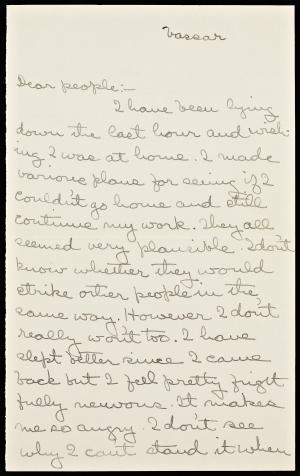 Vassar
Dear people:—
I have been lying
down the last hour and wish-
ing I was at home. I made
various plans for seeing if I
couldn't go home and still
continue my work. They all
seemed very plausible. I don't
know whether they would
strike other people in the
same way. However I don't
really want too. I have
slept better since I came
back but I feel pretty frigt
fully nervous. It makes
me so angry. I don't see
why I can't stand it when